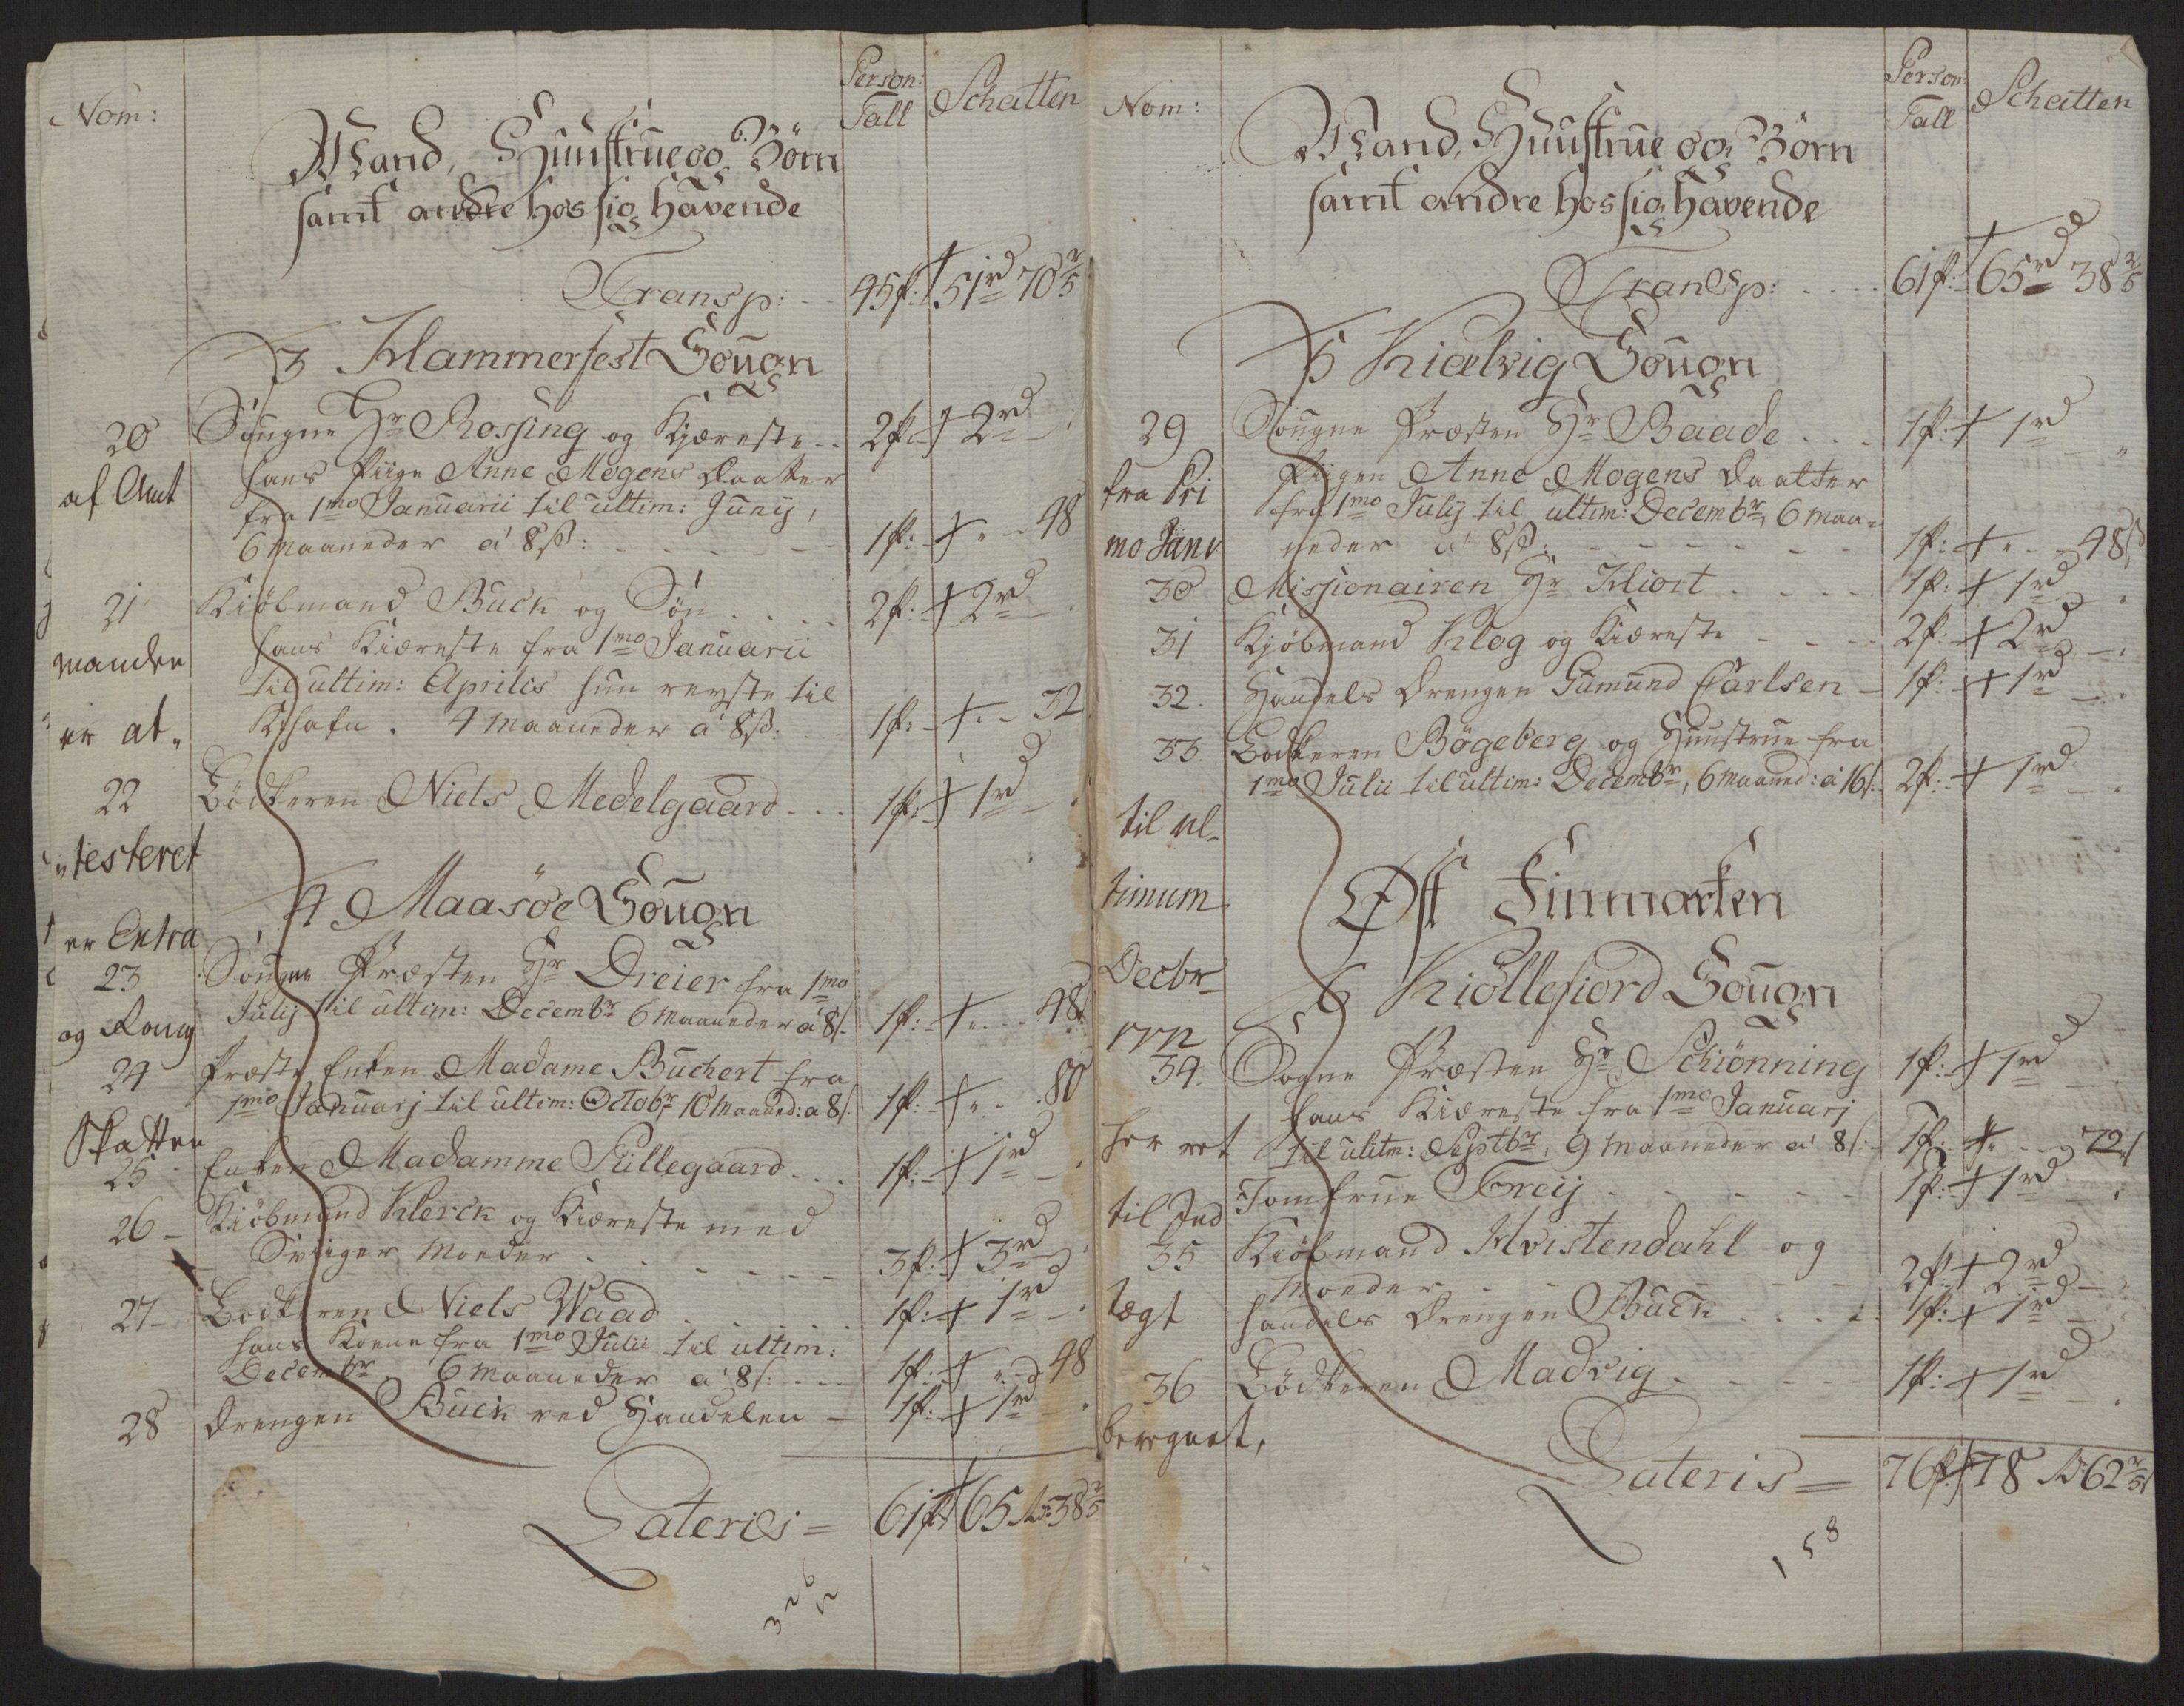 Nom:
Person:
Tall
Schatten
Mand, Huustrue og Börn
samt andre hos sig havende
Transp: 45 p: 51 rd 70 2/5
3 Hammerfest Sougn
20 Sougne Hr Rossing og Kjæreste 2p: 2rd
af Amt
hans Piige Anne Mogens Daatter
fra 1mo Januarii til ultim: Junij,
6 Maaneder á 8ß: 1p: " 48
21 Kiöbmand Buck og Sön 2p: 2rd
hans Kiæreste fra 1mo Januarii
manden
til ultim: Aprilis hun reyste til
Khafn. 4 Maaneder á 8ß: 1p: " 32
er at„
22 Bödkeren Niels Medelgaard 1p: 1rd
„testeret
4 Maasöe Sougn
er Extra
23 Sougne Præsten Hr Dreier fra 1mo
Julij til ultim: Decembr 6 Maaneder á 8ß. 1p: " 48
og Rang
24 Præste Enken Madame Buchert fra
1mo Januarj til ultim: Octobr 10 Maaned: a 8ß. 1p: " 80
Skatten
25 Enken Madamme Püllegaard 1p: 1rd
26 Kiöbmand Klerck og Kiæreste med
Sviiger Moeder 3p: 3rd
27 Bodkeren Niels Waad 1p: 1rd
hans Koene fra 1mo Julii til ultim:
Decembr 6 Maaneder á 8ß: 1p: " 48
28 Drengen Buck ved Handelen 1p: 1rd
Lateris = 61p 65 Rd 38 2/5
Nom:
Person:
Tall
Schatten
Mand, Huustrue og Börn
samt andre hos sig havende
Transp: 61p: 65rd 38 2/5
5 Kielvig Sougn
29 Sougne Præsten Hr Baade 1p: 1rd "
fra Pri
Piigen Anne Mogens Daatter
fra 1mo Julij til ultim: Decembr, 6 Maa=
mo Janv
neder á 8ß: 1p: " 48ß
30 Missionairen Hr Hiort 1p: 1rd
31 Kjöbmand Klog og Kiæreste 2p: 2rd
32. Handels Drengen Gumund Carlsen 1p: 1rd
33. Bodkeren Bögeberg og Huustrue fra
1mo Julii til ultim: Decembr, 6 Maaned: á 16ß. 2p: 1rd
til ul-
timum
Öst Finmarken
Decbr
6 Kiöllefiord Sougn
1772
34. Sogne Præsten Hr Schiönning 1p: 1rd
hans Kiæreste fra 1mo Januarj
her ret
til ulitm: Septbr, 9 Maaneder á 8ß: 1p: " 72ß
Jomfrue Freij 1p: 1rd
til Ind
35 Kiöbmand Hvistendahl og
Moeder 2p: 2rd
tægt
Handels Drengen Buck 1p: 1rd
36 Bödkeren Madvig 1p: 1rd
beregnet,
Lateris = 76p: 78 Rd 62 2/5
158